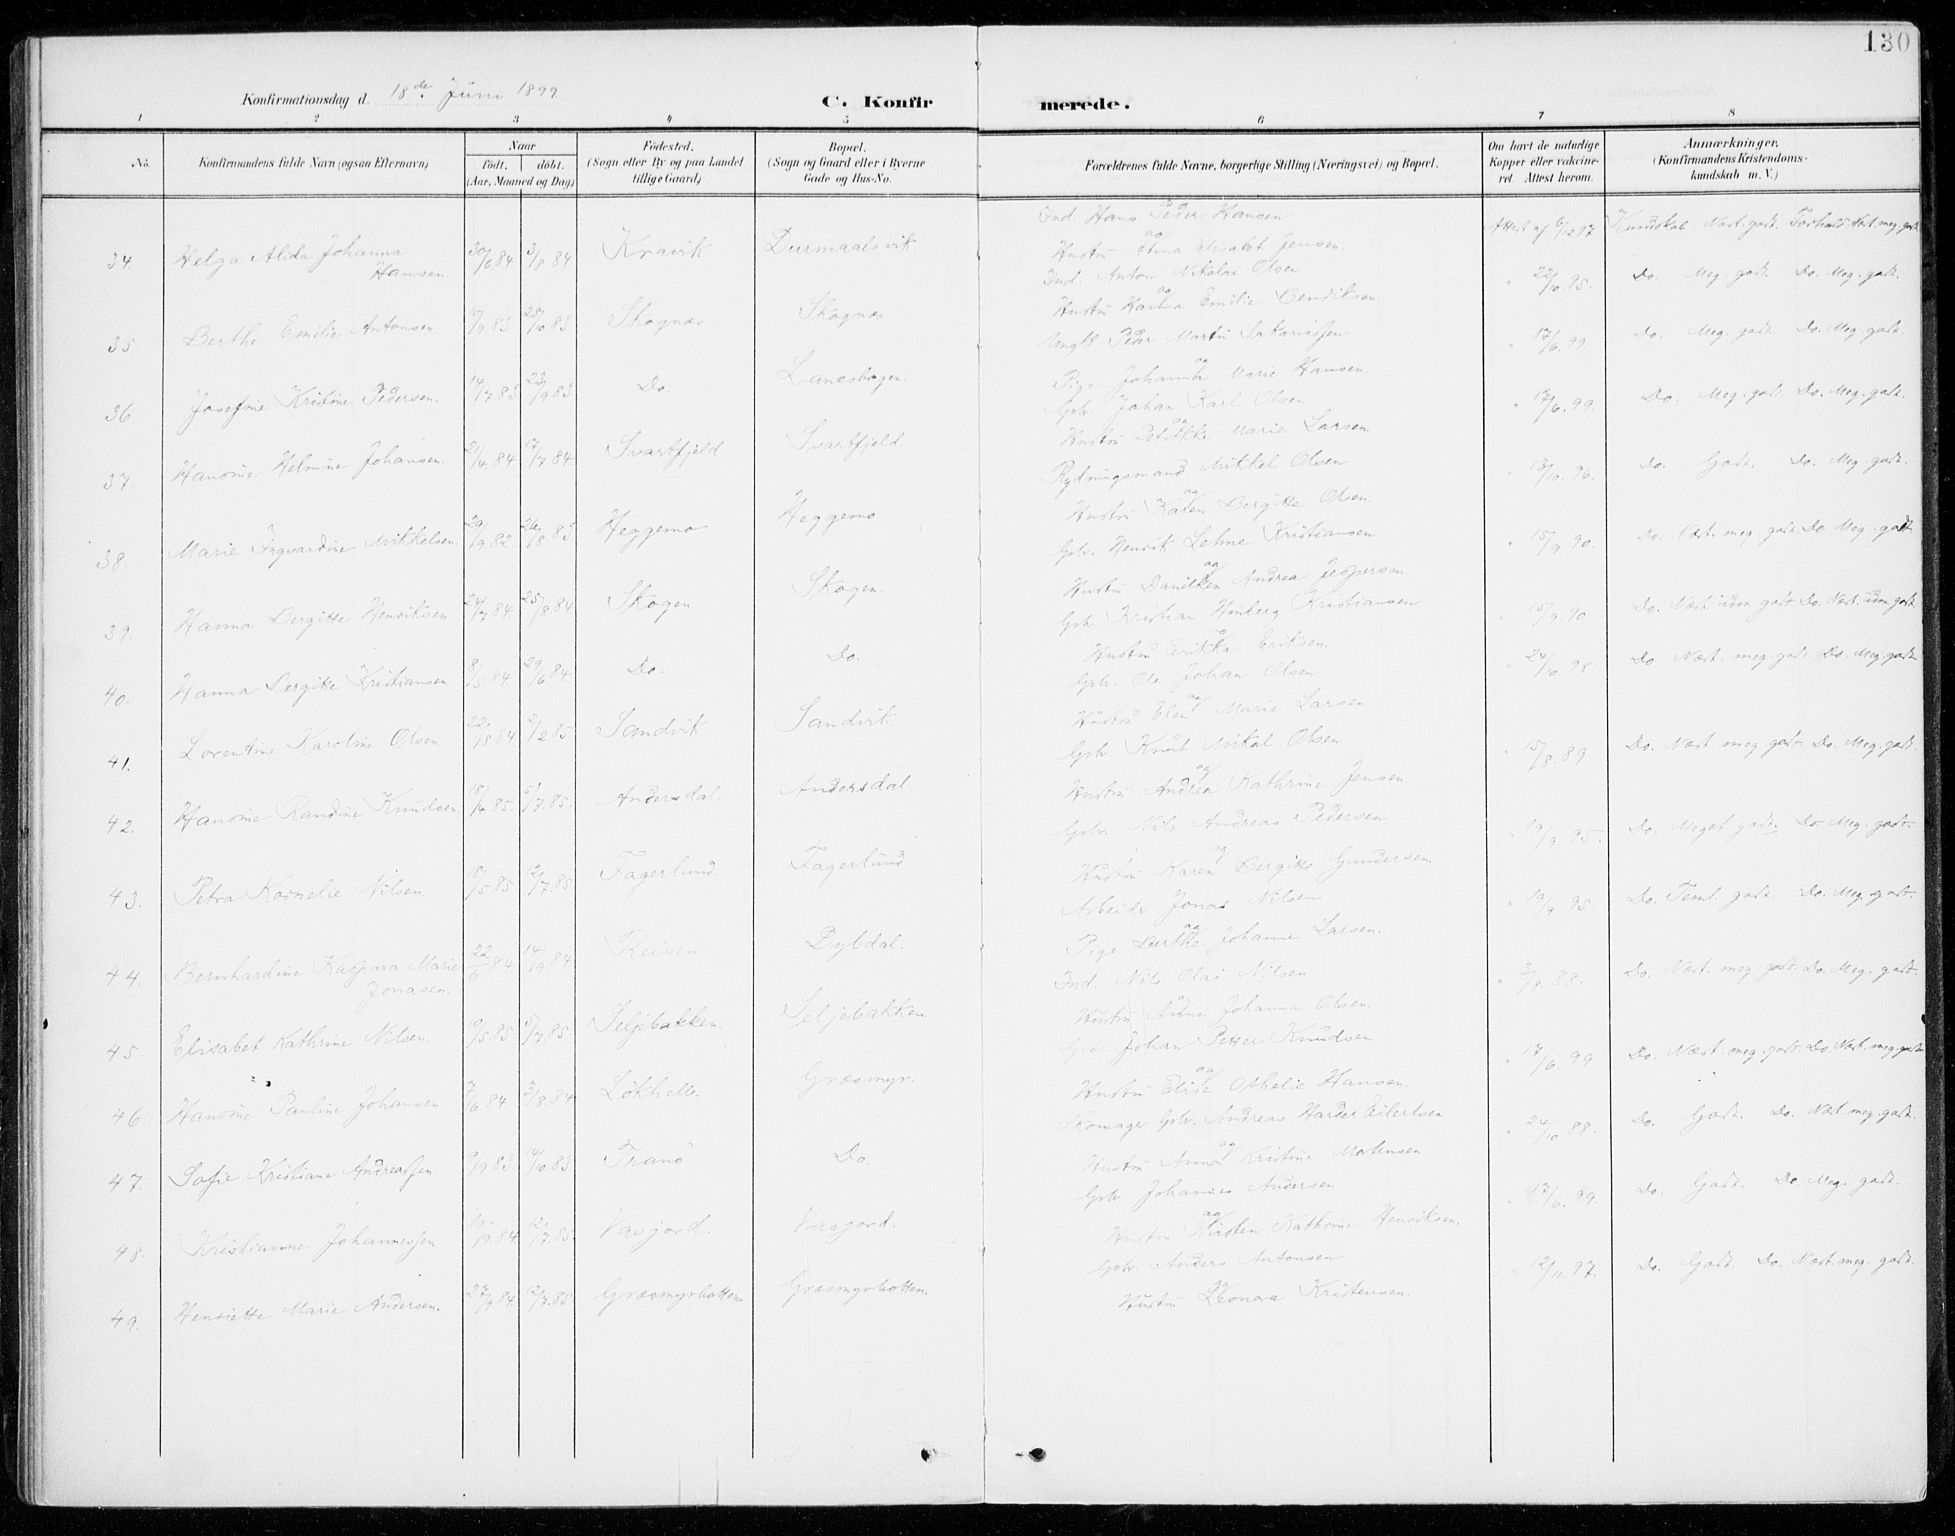 130
Konfirmationsdag d. 18de Juni 1899
C. Konfirmerede.
1 2 3 4 5 6 7 8
No. Konfirmandens fulde Navn (ogsaa Efternavn) Naar født. døbt. (Aar, Maaned og Dag) Fødested. (Sogn eller By og paa Landet tillige Gaard) Bopæl. (Sogn og Gaard eller i Byerne Gade og Hus-No. Forældrenes fulde Navne, borgerlige Stilling (Næringsvei) og Bopæl. Om havt de naturlige Kopper eller vakcineret. Attest herom. Anmærkninger. (Konfirmandens Kristendomskundskab m. V.)
34 Helga Alida Johanna Hansen. 30/6 84 3/8 84 Kravik Durmaalsvik Ind. Hans Peder Hansen og Hustru Anna Elisabet Jensen. Attest af 6/12 97 Kundskab Næst. godt. Forhold Næst. meg. godt.
35. Berthe Emilie Antonsen 17/9 83 28/10 83 Skognæs Skognæs Ind. Anton Nikolai Olsen og Hustru Hanna Emilie Bendiksen. " 22/10. 95. Do. Meg. godt. Do. Meg. godt.
36 Josefine Kristine Pedersen. 14/7 83 23/9 83. Do. Lanæsbogen. Ungk. Peder Martin Sakariassen og Pige Johanna Marie Hansen " 17/6. 99. Do. Meg. godt. Do. Meg. godt.
37. Hansine Helmine Johansen. 21/4 84 17/7 84. Svartfjeld Svartfjeld. Gbr. Johan Karl Olsen og Hustru Marie Larsen " 17/6. 99. Do. Meg. godt. Do. Meg. godt.
38. Marie Ingvardine Mikkelsen. 29/9 82 26/8 83. Heggemo Heggemo Rydningsmand Mikkel Olsen og Hustru Karen Bergitte Olsen. " 13/10. 96. Do. Godt. Do. Meg. godt.
39. Hanna Bergitte Henriksen 24/7 84. 25/8 84 Skogen. Skogen. Gbr. Henrik Lehne Kristiansen og Hustru Andrea Jespersen " 15/9. 90. Do. Næst. meg. godt Do. Meg. godt
40. Hanna Bergitte Kristiansen 8/5 84 29/6 84 Do. Do. Gbr. Kristian Kristiansen og Hustru Erikka Eriksen. " 15/9. 90 Do. Næst. udm. godt Do. Næst. udm. godt
41. Lorentine Karoline Olsen 22/8 84 2/2 85. Sandvik Sandvik Gbr. Ole Johan Olsen og Hustru Elen Marie Larsen " 24/10 98. Do Næst. meg. godt. Do. Meg. godt
42. Hansine Randine Knudsen. 18/4 85. 5/7. 85. Andersdal. Andersdal Gbr. Knut Mikal Olsen og Hustru Andrea Kathrine Jensen. " 15/8. 89 Do. Næst. meg. godt. Do. Meg. godt.
43. Petra Kornelie Nilsen. 18/5 85. 12/7. 85. Fagerlund. Fagerlund. Gbr. Nils Andreas Pedersen og Hustru Karen Bergitte Gundersen. " 19/9 95. Do. Meget godt. Do. Meg. godt.
44. Bernhardine Kaspara Marie Jonasen. 22/6 84 14/9. 84 Reisen. Dybdal. Arbeider Jonas Nilsen og Pige Berthe Johanne Larsen. " 19/9 95. Do. Teml. godt. Do. Meg. godt.
45. Elisabet Kathrine Nilsen. 10/5. 85 5/7. 85 Seljebakken. Seljebakken. Ind. Nils Olai Nilsen og Hustru Anne Johanna Olsen. " 3/8. 88. Do. Næst. meg. godt. Do. Meg. godt.
46. Hansine Pauline Johansen 7/6. 84 3/8. 84 Løkhelle Græsmyr. Gbr. Johan Petter Knudsen og Hustru Elise Othelie Hansen. " 17/6. 99 Do. Næst. meg. godt. Do. Næst. meg. godt
47. Sofie Kristiane Andreassen. 9/9 83 14/10. 83 Tranö Do. Skomager Gbr. Andreas Harder Eilertsen og Hustru Anna Kristine Mortensen " 24/10 88. Do. Godt. Do. Næst. meg. godt.
48. Kristianne Johannessen 19/9. 84. 12/7. 85. Vasjord. Vasjord. Gbr. Johannes Andersen og Hustru Kirsten Kathrine Henriksen. " 17/6. 99. Do. Godt. Do Meg. godt.
49. Henriette Marie Andersen. 27/9 84. 12/7. 85. Græsmyrbotten. Græsmyrbotten. Gbr. Anders Antonsen og Hustru Leonora Kristensen. " 12/11. 97. Do. Godt. Do. Næst. meg. godt.